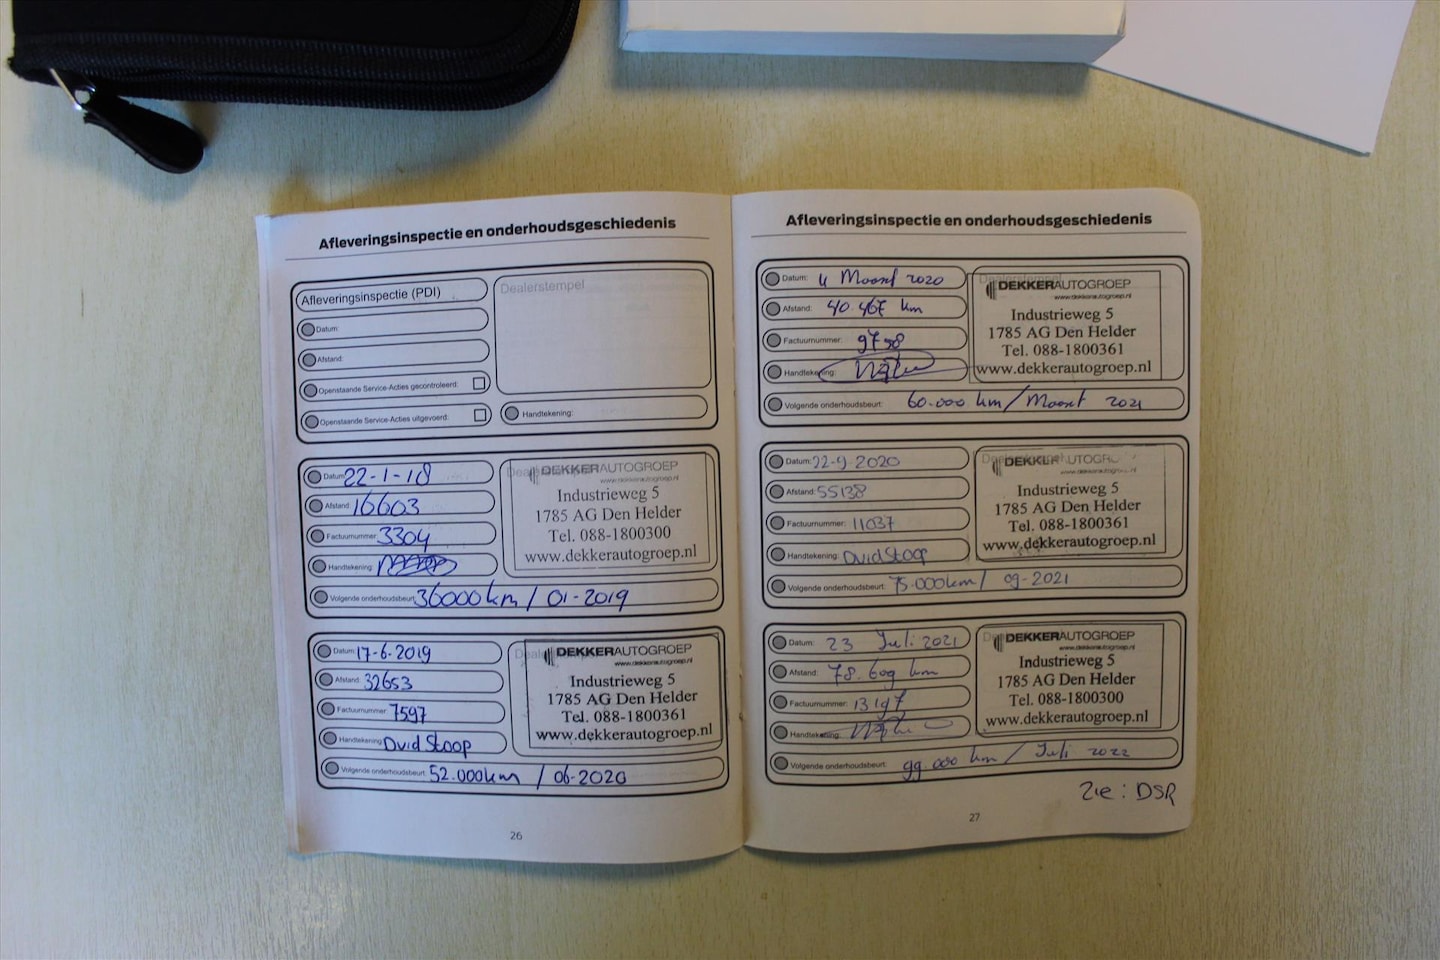 Afleveringsinspectie en onderhoudsgeschiedenis
Afleveringsinspectie (PDI)
Datum:
Afstand:
Openstaande Service-Acties gecontroleerd:
Openstaande Service-Acties uitgevoerd:
Dealerstempel
Handtekening:
Datum: 22-1-18
Afstand: 16603
Factuurnummer: 3304
Handtekening:
Volgende onderhoudsbeurt: 36000km / 01-2019
DEKKERAUTOGROEP
www.dekkerautogroep.nl
Industrieweg 5
1785 AG Den Helder
Tel. 088-1800300
www.dekkerautogroep.nl
Datum: 17-6-2019
Afstand: 32653
Factuurnummer: 7597
Handtekening: Dvid Stoop
Volgende onderhoudsbeurt: 52.000km / 06-2020
DEKKERAUTOGROEP
www.dekkerautogroep.nl
Industrieweg 5
1785 AG Den Helder
Tel. 088-1800361
www.dekkerautogroep.nl
26
Afleveringsinspectie en onderhoudsgeschiedenis
Datum: 4 Maart 2020
Afstand: 40.467 km
Factuurnummer: 9798
Handtekening:
Volgende onderhoudsbeurt: 60.000 km / Maart 2021
Dealerstempel
DEKKERAUTOGROEP
www.dekkerautogroep.nl
Industrieweg 5
1785 AG Den Helder
Tel. 088-1800361
www.dekkerautogroep.nl
Datum: 22-9-2020
Afstand: 55138
Factuurnummer: 11037
Handtekening: Dvid Stoop
Volgende onderhoudsbeurt: 75.000km / 09-2021
DEKKERAUTOGROEP
www.dekkerautogroep.nl
Industrieweg 5
1785 AG Den Helder
Tel. 088-1800361
www.dekkerautogroep.nl
Datum: 23 Juli 2021
Afstand: 78.609 km
Factuurnummer: 13197
Handtekening:
Volgende onderhoudsbeurt: 99.000 km / Juli 2022
DEKKERAUTOGROEP
www.dekkerautogroep.nl
Industrieweg 5
1785 AG Den Helder
Tel. 088-1800300
www.dekkerautogroep.nl
Zie: DSR
27